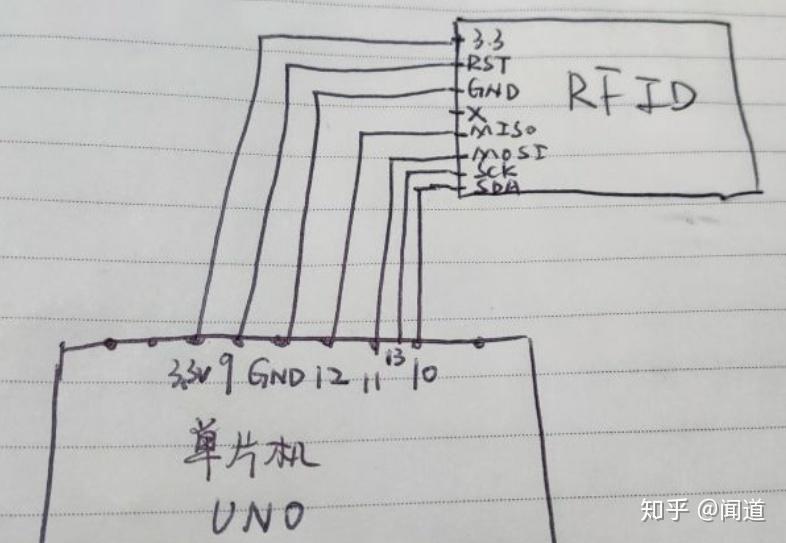 3.3
RST
GND
X
MISO
MOSI
SCK
SDA
RFID
3.3V 9 GND 12 11 13 10
单片机
UNO
知乎 @闻道